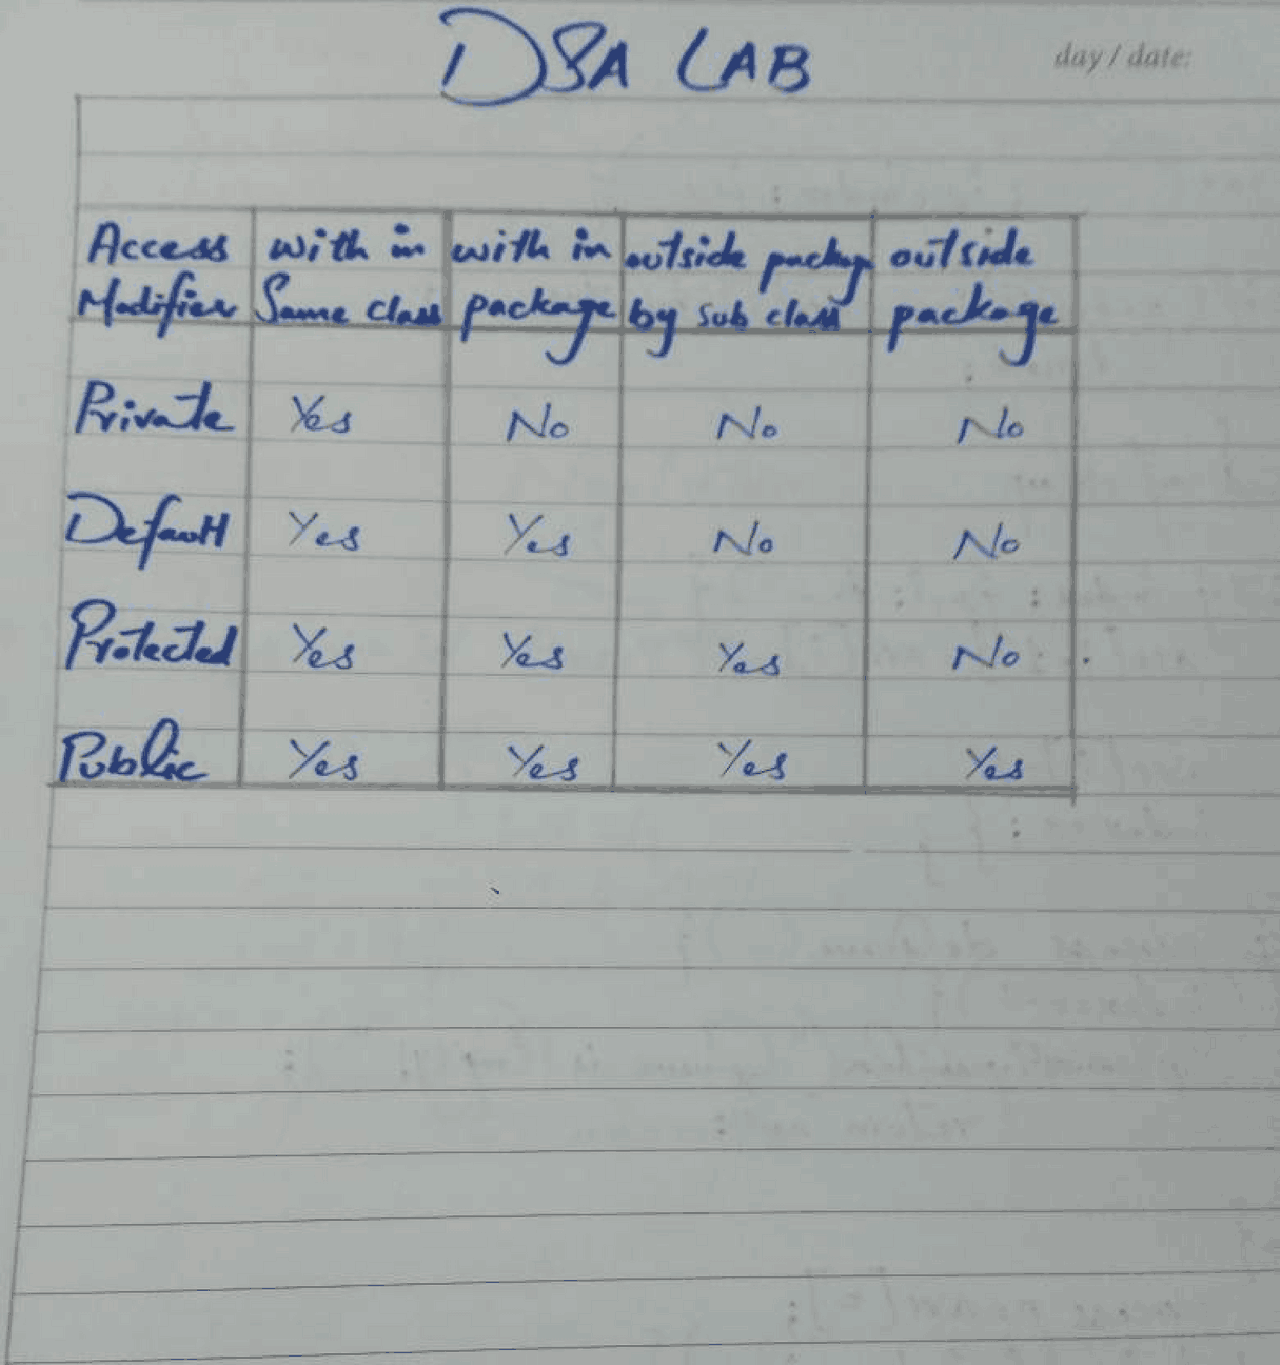 DSA LAB
day / date:
Access Modifier | with in Same class | with in package | outside packag by sub class | outside package
Private | Yes | No | No | No
Default | Yes | Yes | No | No
Protected | Yes | Yes | Yes | No
Public | Yes | Yes | Yes | Yes